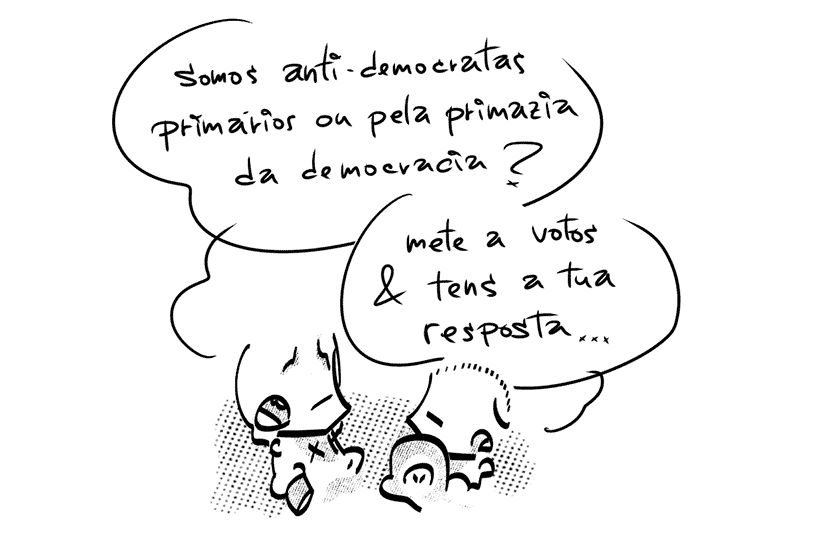 Somos anti-democratas
primários ou pela primazia
da democracia?
mete a votos
& tens a tua
resposta...